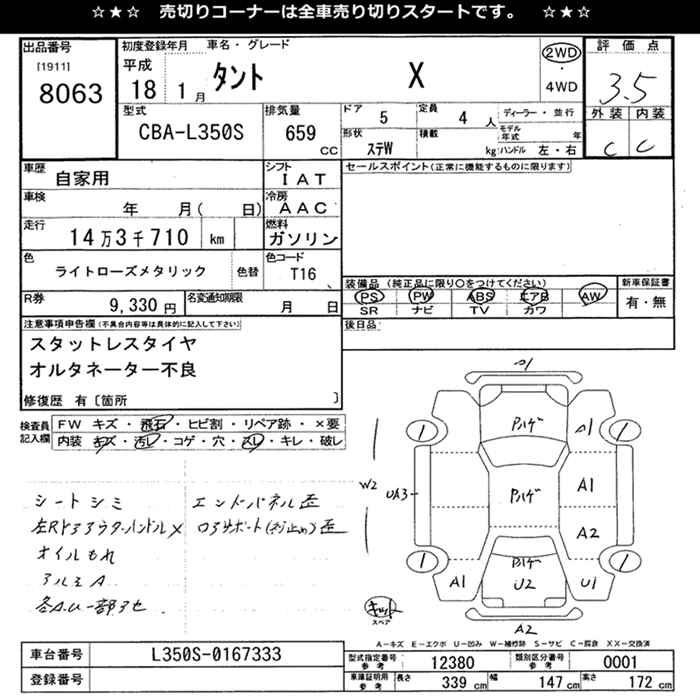 ☆★☆ 売切りコーナーは全車売り切りスタートです。 ☆★☆
出品番号 初度登録年月 車名・グレード 2WD 評価点
[1911] 平成
8063 18 1月 タント X ・ 4WD 3.5
型式 排気量 ドア 5 定員 4人 ディーラー・並行 外装 内装
CBA-L350S 659 CC 形状 ステW 積載 kg モデル年式 年 ハンドル 左・右 C C
車歴 自家用 シフト IAT セールスポイント(正常に機能するものに限ります)
車検 年 月( 日) 冷房 AAC
走行 14万3千710 km 燃料 ガソリン
色 ライトローズメタリック 色替 色コード T16
装備品(純正品に限り○をつけてください) 新車保証書
PS PW ABS エアB AW 有・無
SR ナビ TV カワ
R券 9,330円 名変通知期限 月 日
後日品
注意事項申告欄(不具合内容等は具体的に記入して下さい)
スタットレスタイヤ
オルタネーター不良
修復歴 有〔箇所 〕
検査員記入欄 FW キズ・飛石・ヒビ割・リペア跡・×要
内装 キズ・汚レ・コゲ・穴・スレ・キレ・破レ
シートシミ エンドパネル歪
オイルもれ
アルミA
Pハゲ
Pハゲ
Pハゲ
A1
W2 UA3
A1
A2
A1 U2 U1
A2
スペア
A-キズ E-エクボ U-凹み W-補修跡 S-サビ C-腐食 XX-交換済
車台番号 L350S-0167333
登録番号
型式指定番号 参考 12380 類別区分番号 参考 0001
車庫証明用 参考 長さ 339 cm 幅 147 cm 高さ 172 cm